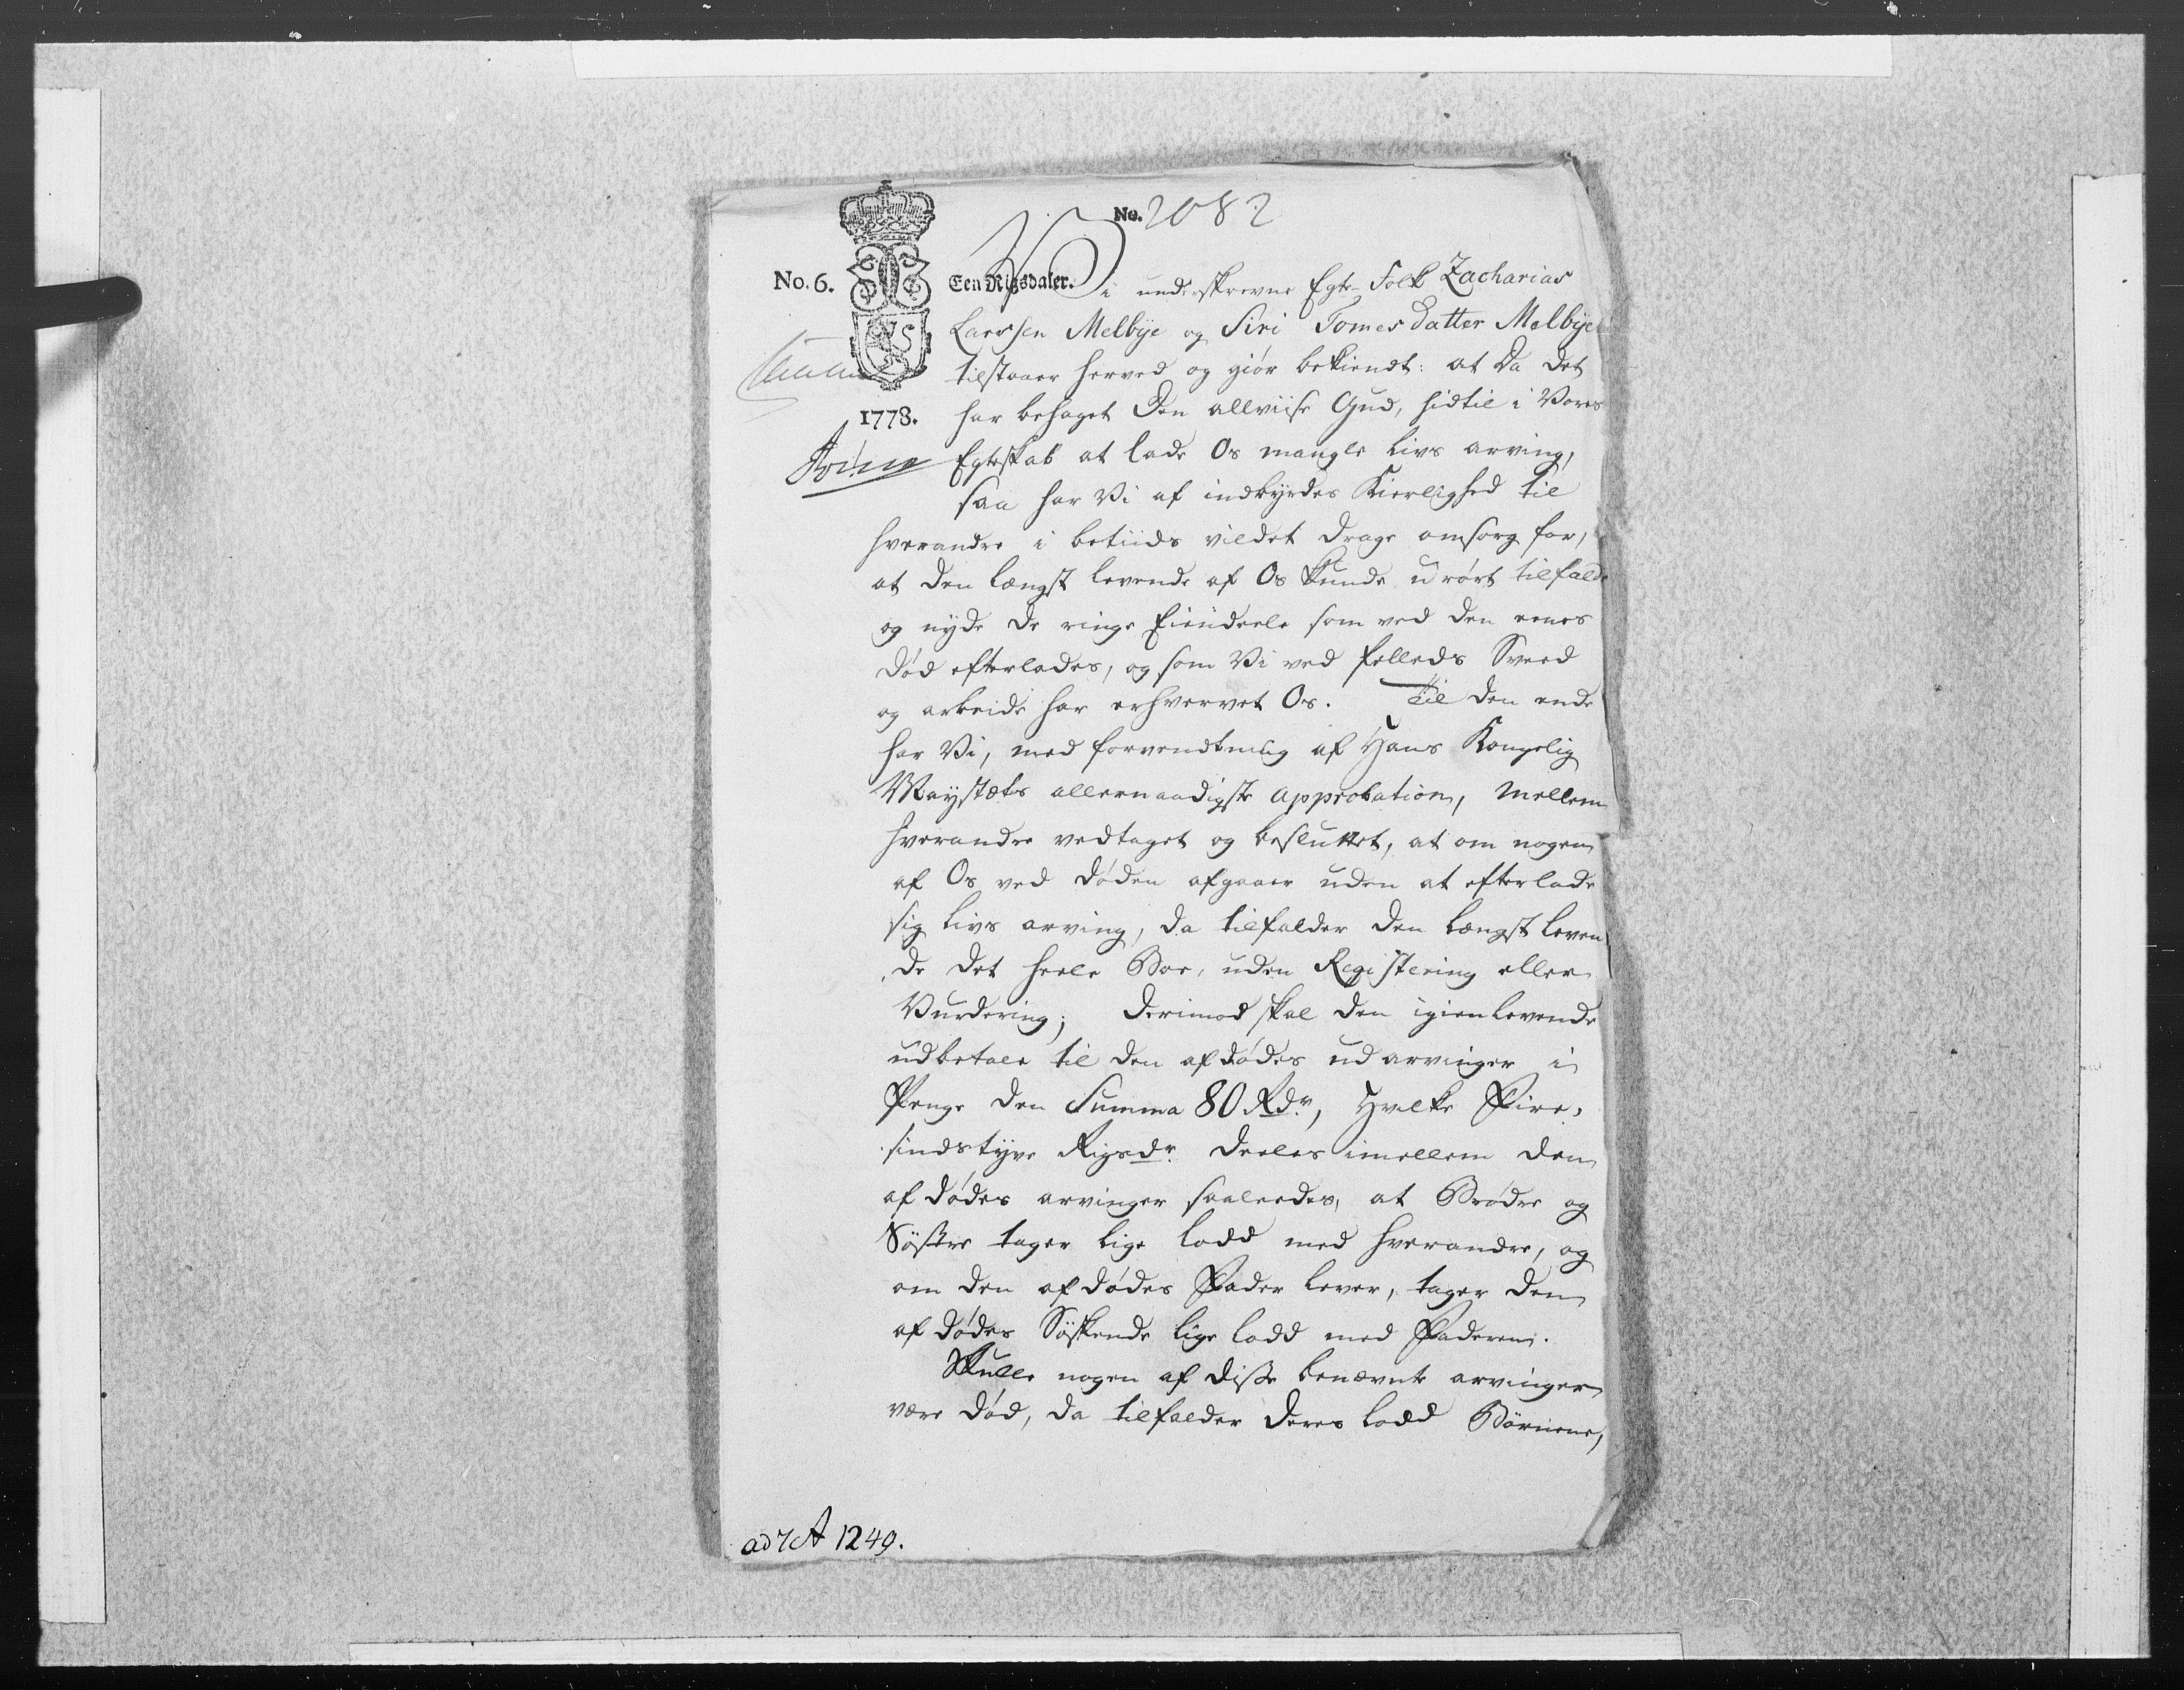 No. 2082
No. 6. Een Rigsdaler.
Vi underskrevne Egte-Folk Zacharias
Larssen Melbÿe og Siri Tomesdatter Melbÿe
tilstaaer herved og giør bekiendt: at da det
1773. har behaget Den allviise Gud, hidtil i Vores
Egteskab at lade Os mangle livs arving,
saa har Vi af indbyrdes Kierlighed til
hverandre i betiids vildet drage omsorg for,
at den længst levende af Os kunde urørt tilfalde
og nyde de ringe Eiendeele som ved den eenes
død efterlades, og som Vi ved felleds Sveed
og arbeide har erhvervet Os. Til den ende
har Vi, med forventning af Hans Kongelig
Mayestæts allernaadigste approbation, mellem
hverandre vedtaget og besluttet, at om nogen
af Os ved døden afgaaer uden at efterlade
sig livs arving, da tilfalder den længst leven
de det heele Boe, uden Registering eller
Vurdering; Derimod skal den igienlevende
udbetale til den afdødes udarvinger i
Penge den Summa 80 Rdr, Hvilke Fire-
sindstyve Rigsdr. deeles imellem den
afdødes arvinger saaleedes, at Brødre og
Søstre tager lige lodd med hverandre, og
om den afdødes Fader lever, tager den
afdødes Søskende lige lodd med Faderen.
Skulle nogen af disse benævnte arvinger
være død, da tilfalder deres lodd Børnene,
ad 1249.